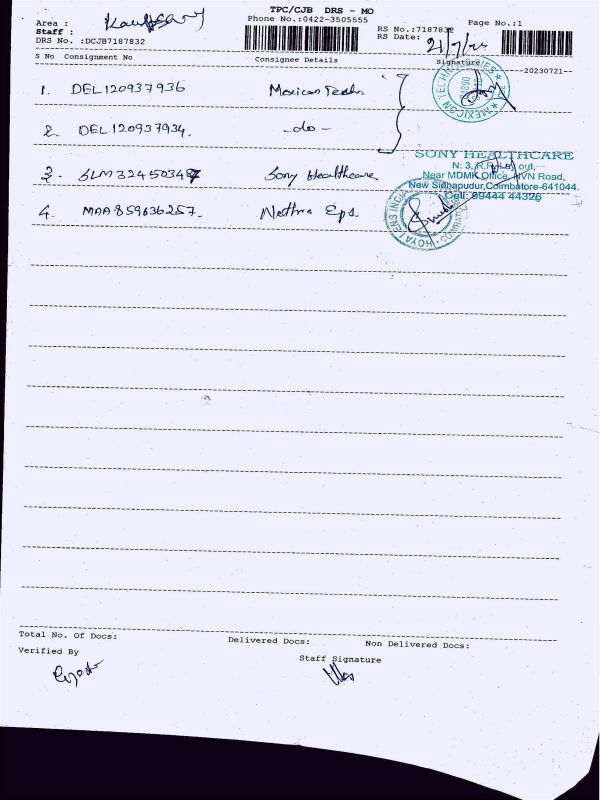 TPC/CJB DRS - MO
Area :
Phone No.:0422-3505555
Page No.:1
Staff :
RS No.:7187832
DRS No. :DCJB7187832
RS Date: 21/7/
S No Consignment No Consignee Details Signature
--20230721--
1. DEL120937936 Mexican Tech
2. DEL120937934. -do-
3. SLM324503487 Sony Healthcare
SONY HEALTHCARE
N: 3, R.R. Lay out,
Near MDMK Office, NVN Road,
New Sidhapudur, Coimbatore-641044.
Cell: 99444 44326
4. MAA859636257. Nethra Eps.
MEXICON TECH
HOYA LENS INDIA
Total No. Of Docs: Delivered Docs: Non Delivered Docs:
Verified By Staff Signature